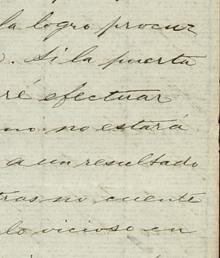 la logro procu-
. Si la puerta
ré efectuar
no no estará
a un resultado
tras no cuente
lo vicioso en